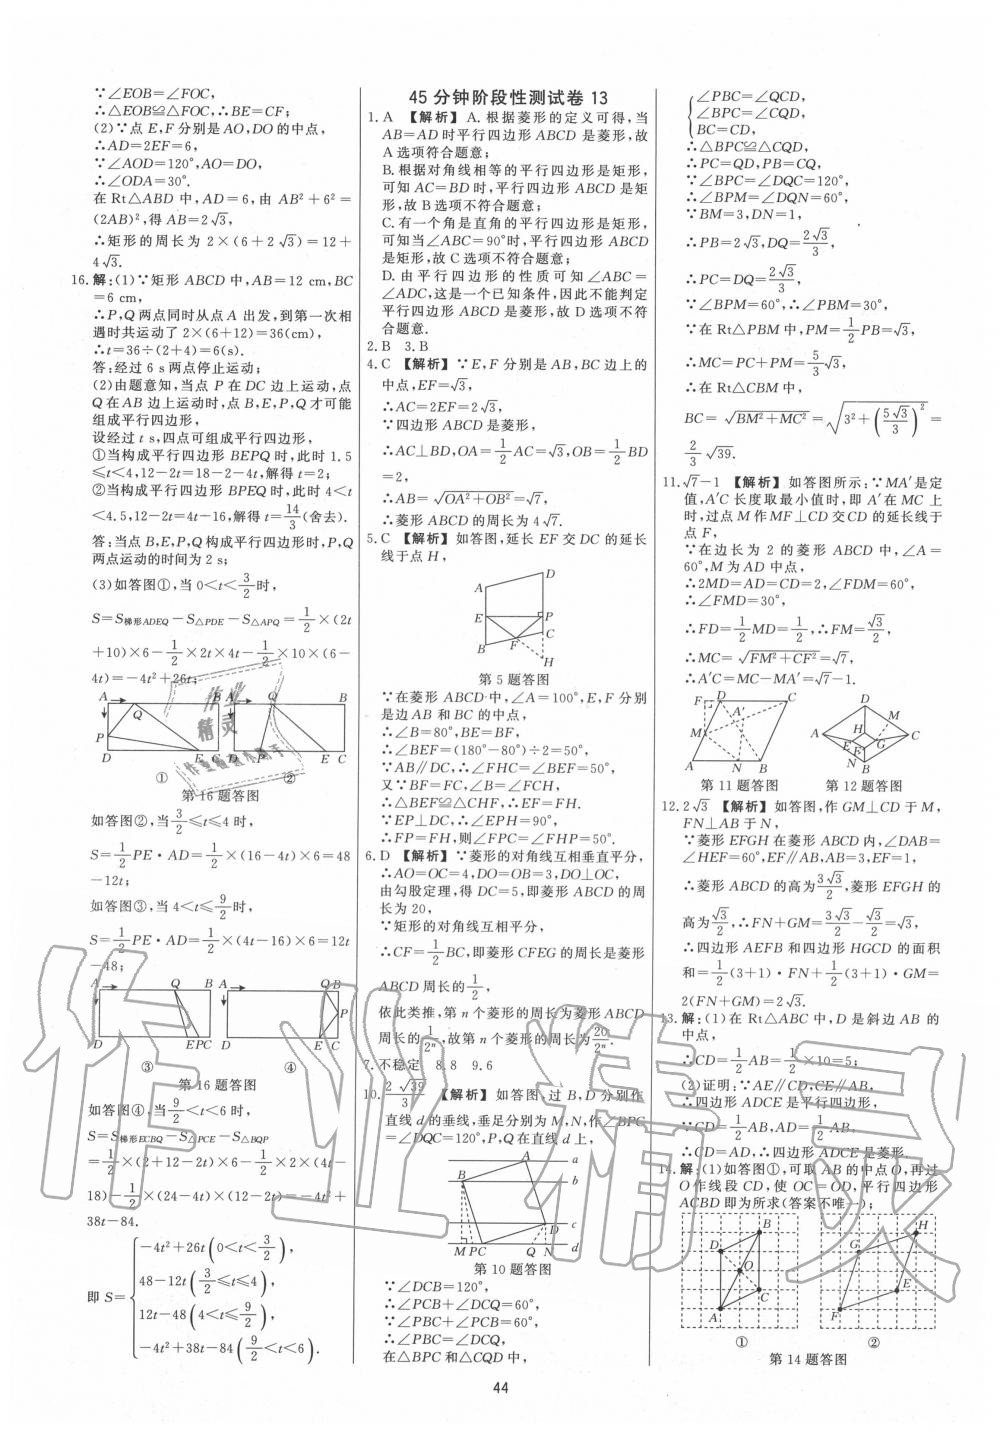 ∵∠EOB=∠FOC,
∴△EOB≌△FOC,∴BE=CF;
(2)∵点 E,F 分别是 AO,DO 的中点,
∴AD=2EF=6,
∵∠AOD=120°,AO=DO,
∴∠ODA=30°.
在 Rt△ABD 中,AD=6,由 AB²+6²=
(2AB)²,得 AB=2√3,
∴矩形的周长为 2×(6+2√3)=12+
4√3.
16.解:(1)∵矩形 ABCD 中,AB=12 cm,BC
=6 cm,
∴P,Q 两点同时从点 A 出发,到第一次相
遇时共运动了 2×(6+12)=36(cm),
∴t=36÷(2+4)=6(s).
答:经过 6 s 两点停止运动;
(2)由题意知,当点 P 在 DC 边上运动,点
Q 在 AB 边上运动时,点 B,E,P,Q 才可能
组成平行四边形,
设经过 t s,四点可组成平行四边形,
①当构成平行四边形 BEPQ 时,此时 1.5
≤t<4,12-2t=18-2-4t,解得 t=2;
②当构成平行四边形 BPEQ 时,此时 4<t
<4.5,12-2t=4t-16,解得 t=14/3(舍去).
答:当点 B,E,P,Q 构成平行四边形时,P,Q
两点运动的时间为 2 s;
(3)如答图①,当 0<t<3/2时,
S=S梯形ADEQ-S△PDE-S△APQ=1/2×(2t
+10)×6-1/2×2t×4t-1/2×10×(6-
4t)=-4t²+26t;
A Q B P D E C
①
A Q B D P E C
②
第 16 题答图
如答图②,当3/2≤t≤4 时,
S=1/2PE·AD=1/2×(16-4t)×6=48
-12t;
如答图③,当 4<t≤9/2时,
S=1/2PE·AD=1/2×(4t-16)×6=12t
-48;
A Q B D E P C
③
A Q B P D E C
④
第 16 题答图
如答图④,当9/2<t<6 时,
S=S梯形ECBQ-S△PCE-S△BQP
=1/2×(2+12-2t)×6-1/2×2×(4t-
18)-1/2×(24-4t)×(12-2t)=-4t²+
38t-84.
即 S={
-4t²+26t(0<t<3/2),
48-12t(3/2≤t≤4),
12t-48(4<t≤9/2),
-4t²+38t-84(9/2<t<6).
45 分钟阶段性测试卷 13
1.A 【解析】 A.根据菱形的定义可得,当
AB=AD 时平行四边形 ABCD 是菱形,故
A 选项符合题意;
B.根据对角线相等的平行四边形是矩形,
可知 AC=BD 时,平行四边形 ABCD 是矩
形,故 B 选项不符合题意;
C.有一个角是直角的平行四边形是矩形,
可知当∠ABC=90°时,平行四边形 ABCD
是矩形,故 C 选项不符合题意;
D.由平行四边形的性质可知∠ABC=
∠ADC,这是一个已知条件,因此不能判定
平行四边形 ABCD 是菱形,故 D 选项不符
合题意.
2.B 3.B
4.C 【解析】 ∵E,F 分别是 AB,BC 边上的
中点,EF=√3,
∴AC=2EF=2√3,
∵四边形 ABCD 是菱形,
∴AC⊥BD,OA=1/2AC=√3,OB=1/2BD
=2,
∴AB=√(OA²+OB²)=√7,
∴菱形 ABCD 的周长为 4√7.
5.C 【解析】 如答图,延长 EF 交 DC 的延长
线于点 H,
A D E P B F C H
第 5 题答图
∵在菱形 ABCD 中,∠A=100°,E,F 分别
是边 AB 和 BC 的中点,
∴∠B=80°,BE=BF,
∴∠BEF=(180°-80°)÷2=50°,
∵AB∥DC,∴∠FHC=∠BEF=50°,
又∵BF=FC,∠B=∠FCH,
∴△BEF≌△CHF,∴EF=FH,
∵EP⊥DC,∴∠EPH=90°,
∴FP=FH,则∠FPC=∠FHP=50°.
6.D 【解析】 ∵菱形的对角线互相垂直平分,
∴AO=OC=4,DO=OB=3,DO⊥OC,
由勾股定理,得 DC=5,即菱形 ABCD 的周
长为 20,
∵矩形的对角线互相平分,
∴CF=1/2BC,即菱形 CFEG 的周长是菱形
ABCD 周长的1/2,
依此类推,第 n 个菱形的周长为菱形 ABCD
周长的1/2ⁿ,故第 n 个菱形的周长为20/2ⁿ.
7.不稳定 8.8 9.6
10.2√39/3 【解析】 如答图,过 B,D 分别作
直线 d 的垂线,垂足分别为 M,N,作∠BPC
=∠DQC=120°,P,Q 在直线 d 上,
A a B b D c M P C Q N d
第 10 题答图
∵∠DCB=120°,
∴∠PCB+∠DCQ=60°,
∵∠PBC+∠PCB=60°,
∴∠PBC=∠DCQ,
在△BPC 和△CQD 中,
{∠PBC=∠QCD,
∠BPC=∠CQD,
BC=CD,
∴△BPC≌△CQD,
∴PC=QD,PB=CQ,
∵∠BPC=∠DQC=120°,
∴∠BPM=∠DQN=60°,
∵BM=3,DN=1,
∴PB=2√3,DQ=2√3/3,
∴PC=DQ=2√3/3,
∵∠BPM=60°,∴∠PBM=30°,
∵在 Rt△PBM 中,PM=1/2PB=√3,
∴MC=PC+PM=5/3√3,
∴在 Rt△CBM 中,
BC=√(BM²+MC²)=√(3²+(5√3/3)²)=
2/3√39.
11.√7-1 【解析】 如答图所示:∵MA′是定
值,A′C 长度取最小值时,即 A′在 MC 上
时,过点 M 作 MF⊥CD 交 CD 的延长线于
点 F,
∵在边长为 2 的菱形 ABCD 中,∠A=
60°,M 为 AD 中点,
∴2MD=AD=CD=2,∠FDM=60°,
∴∠FMD=30°,
∴FD=1/2MD=1/2,∴FM=√3/2,
∴MC=√(FM²+CF²)=√7,
∴A′C=MC-MA′=√7-1.
F D C A′ M A N B
第 11 题答图
D M H G A C E F N B
第 12 题答图
12.2√3 【解析】 如答图,作 GM⊥CD 于 M,
FN⊥AB 于 N,
∵菱形 EFGH 在菱形 ABCD 内,∠DAB=
∠HEF=60°,EF∥AB,AB=3,EF=1,
∴菱形 ABCD 的高为3√3/2,菱形 EFGH 的
高为√3/2,∴FN+GM=3√3/2-√3/2=√3,
∴四边形 AEFB 和四边形 HGCD 的面积
和=1/2(3+1)·FN+1/2(3+1)·GM=
2(FN+GM)=2√3.
13.解:(1)在 Rt△ABC 中,D 是斜边 AB 的
中点,
∴CD=1/2AB=1/2×10=5;
(2)证明:∵AE∥CD,CE∥AB,
∴四边形 ADCE 是平行四边形,
∵CD=1/2AB,AD=1/2AB,
∴CD=AD,∴四边形 ADCE 是菱形.
14.解:(1)如答图①,可取 AB 的中点 O,再过
O 作线段 CD,使 OC=OD,平行四边形
ACBD 即为所求(答案不唯一);
B D O C A
①
H G E F
②
第 14 题答图
44
作业精灵